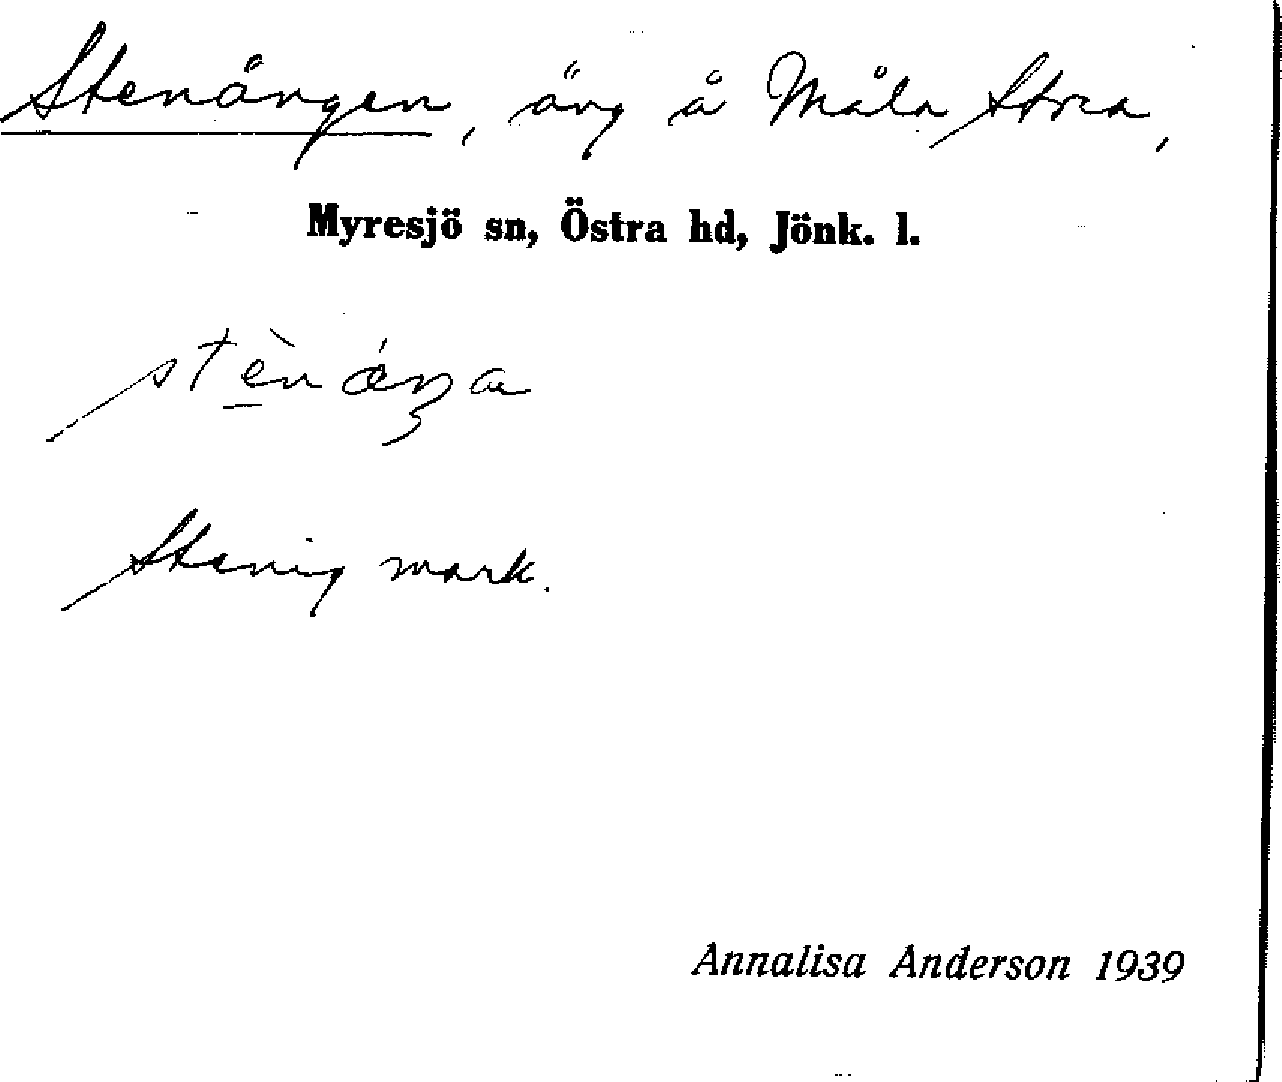 Stenängen, äng å Måla Stora,
Myresjö sn, Östra hd, Jönk. l.
Stenig mark.
Annalisa Anderson 1939